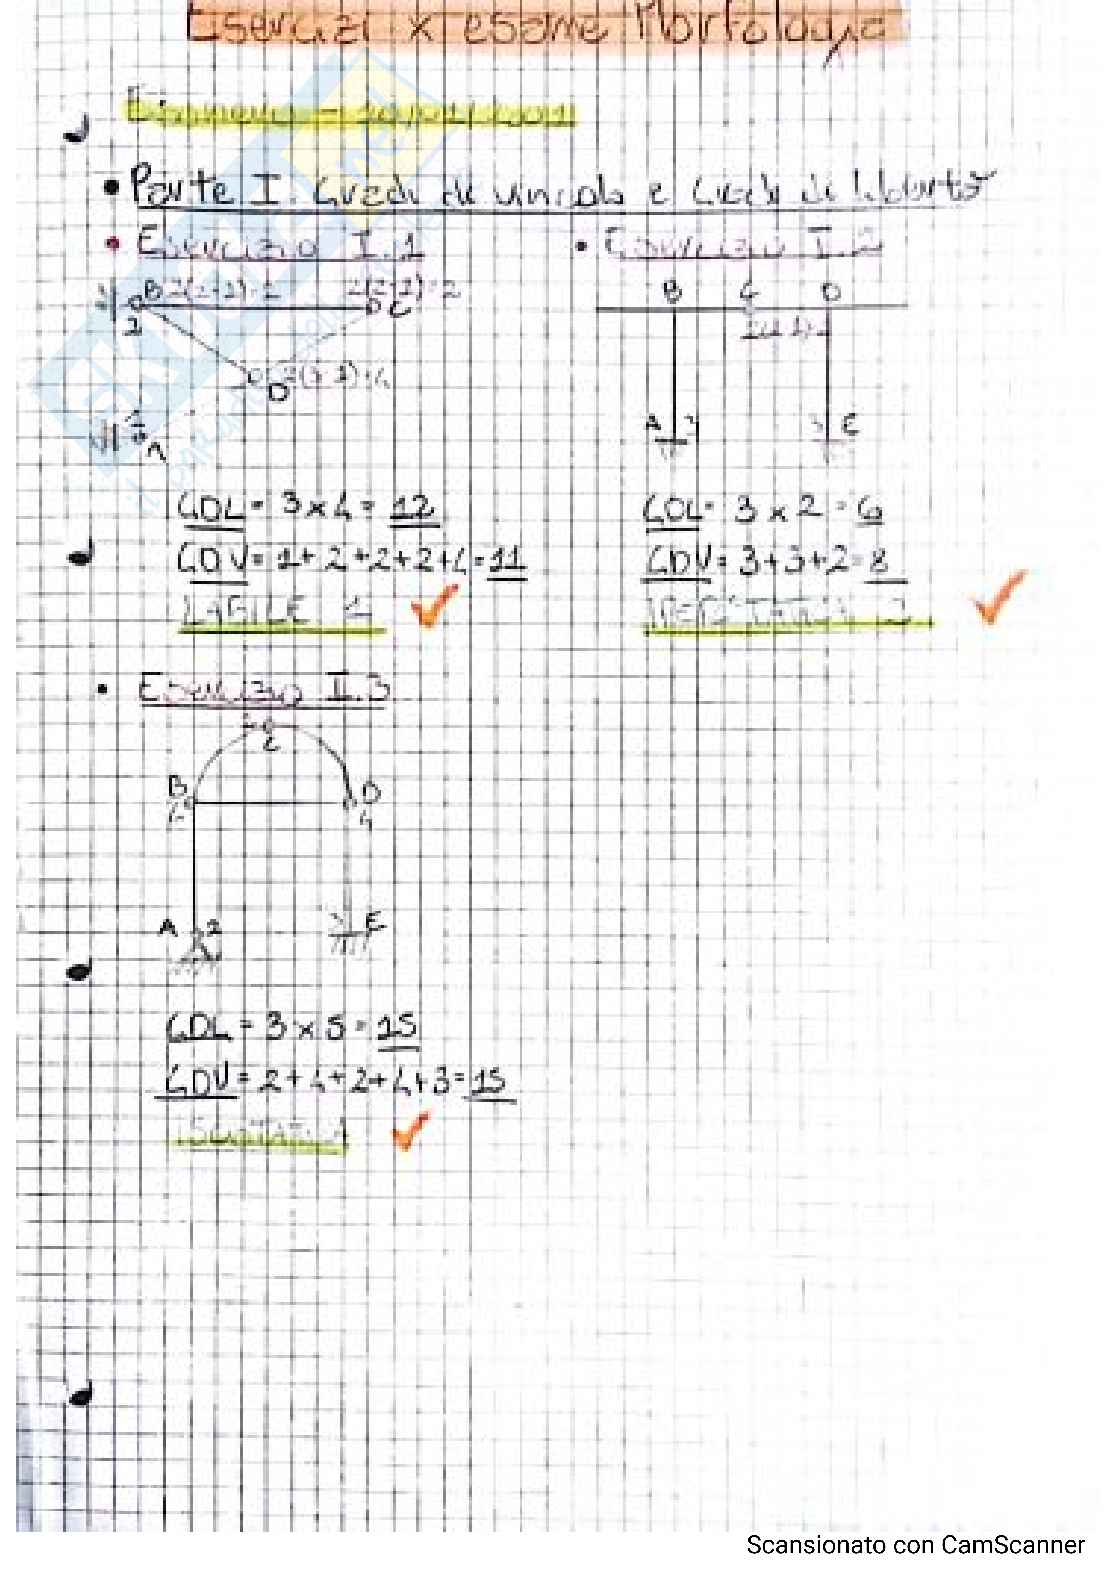 Esercizi x esame Morfologia
Parte I: Gradi di vincolo e Gradi di libertà
• Esercizio I.1
• Esercizio I.2
B 2(2-1)=2 2(2-1)=2
C
2
D
A
B C D
A 3 3 E
GDL = 3 x 4 = 12
GDL = 3 x 2 = 6
GDV = 1 + 2 + 2 + 2 + 4 = 11
GDV = 3 + 3 + 2 = 8
LABILE 1
IPERSTATICA 2
• Esercizio II.3
2
C
B D
4 4
A 2 3 E
GDL = 3 x 5 = 15
GDV = 2 + 4 + 2 + 4 + 3 = 15
ISOSTATICA
Scansionato con CamScanner